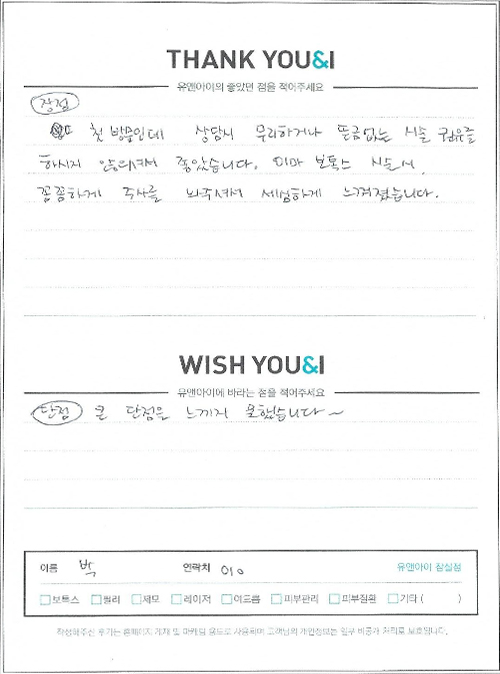 THANK YOU&I
유앤아이의 좋았던 점을 적어주세요
장점
첫 방문인데 상담시 무리하거나 뜬금없는 시술 권유를
하시지 않으셔서 좋았습니다. 이마 보톡스 시술시,
꼼꼼하게 주사를 놔주셔서 세심하게 느껴졌습니다.
WISH YOU&I
유앤아이에 바라는 점을 적어주세요
단점 큰 단점은 느끼지 못했습니다~
이름 박 연락처 010 유앤아이 잠실점
보톡스 필러 제모 레이저 여드름 피부관리 피부질환 기타 ( )
작성해주신 후기는 홈페이지 게재 및 마케팅 용도로 사용되며 고객님의 개인정보는 일부 비공개 처리로 보호됩니다.